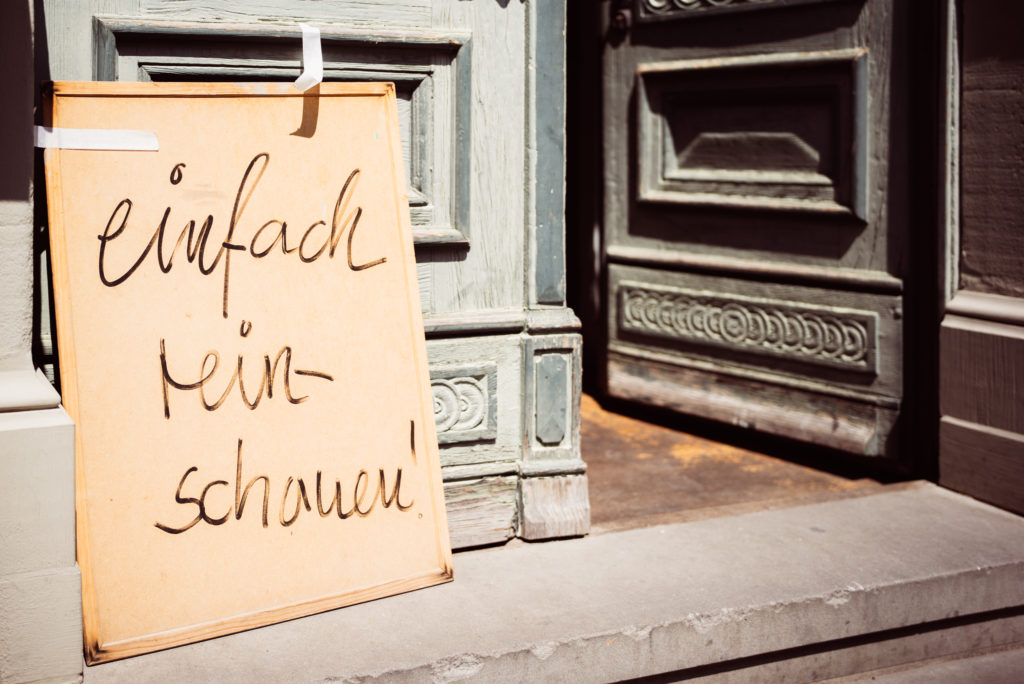 einfach
rein-
schauen!